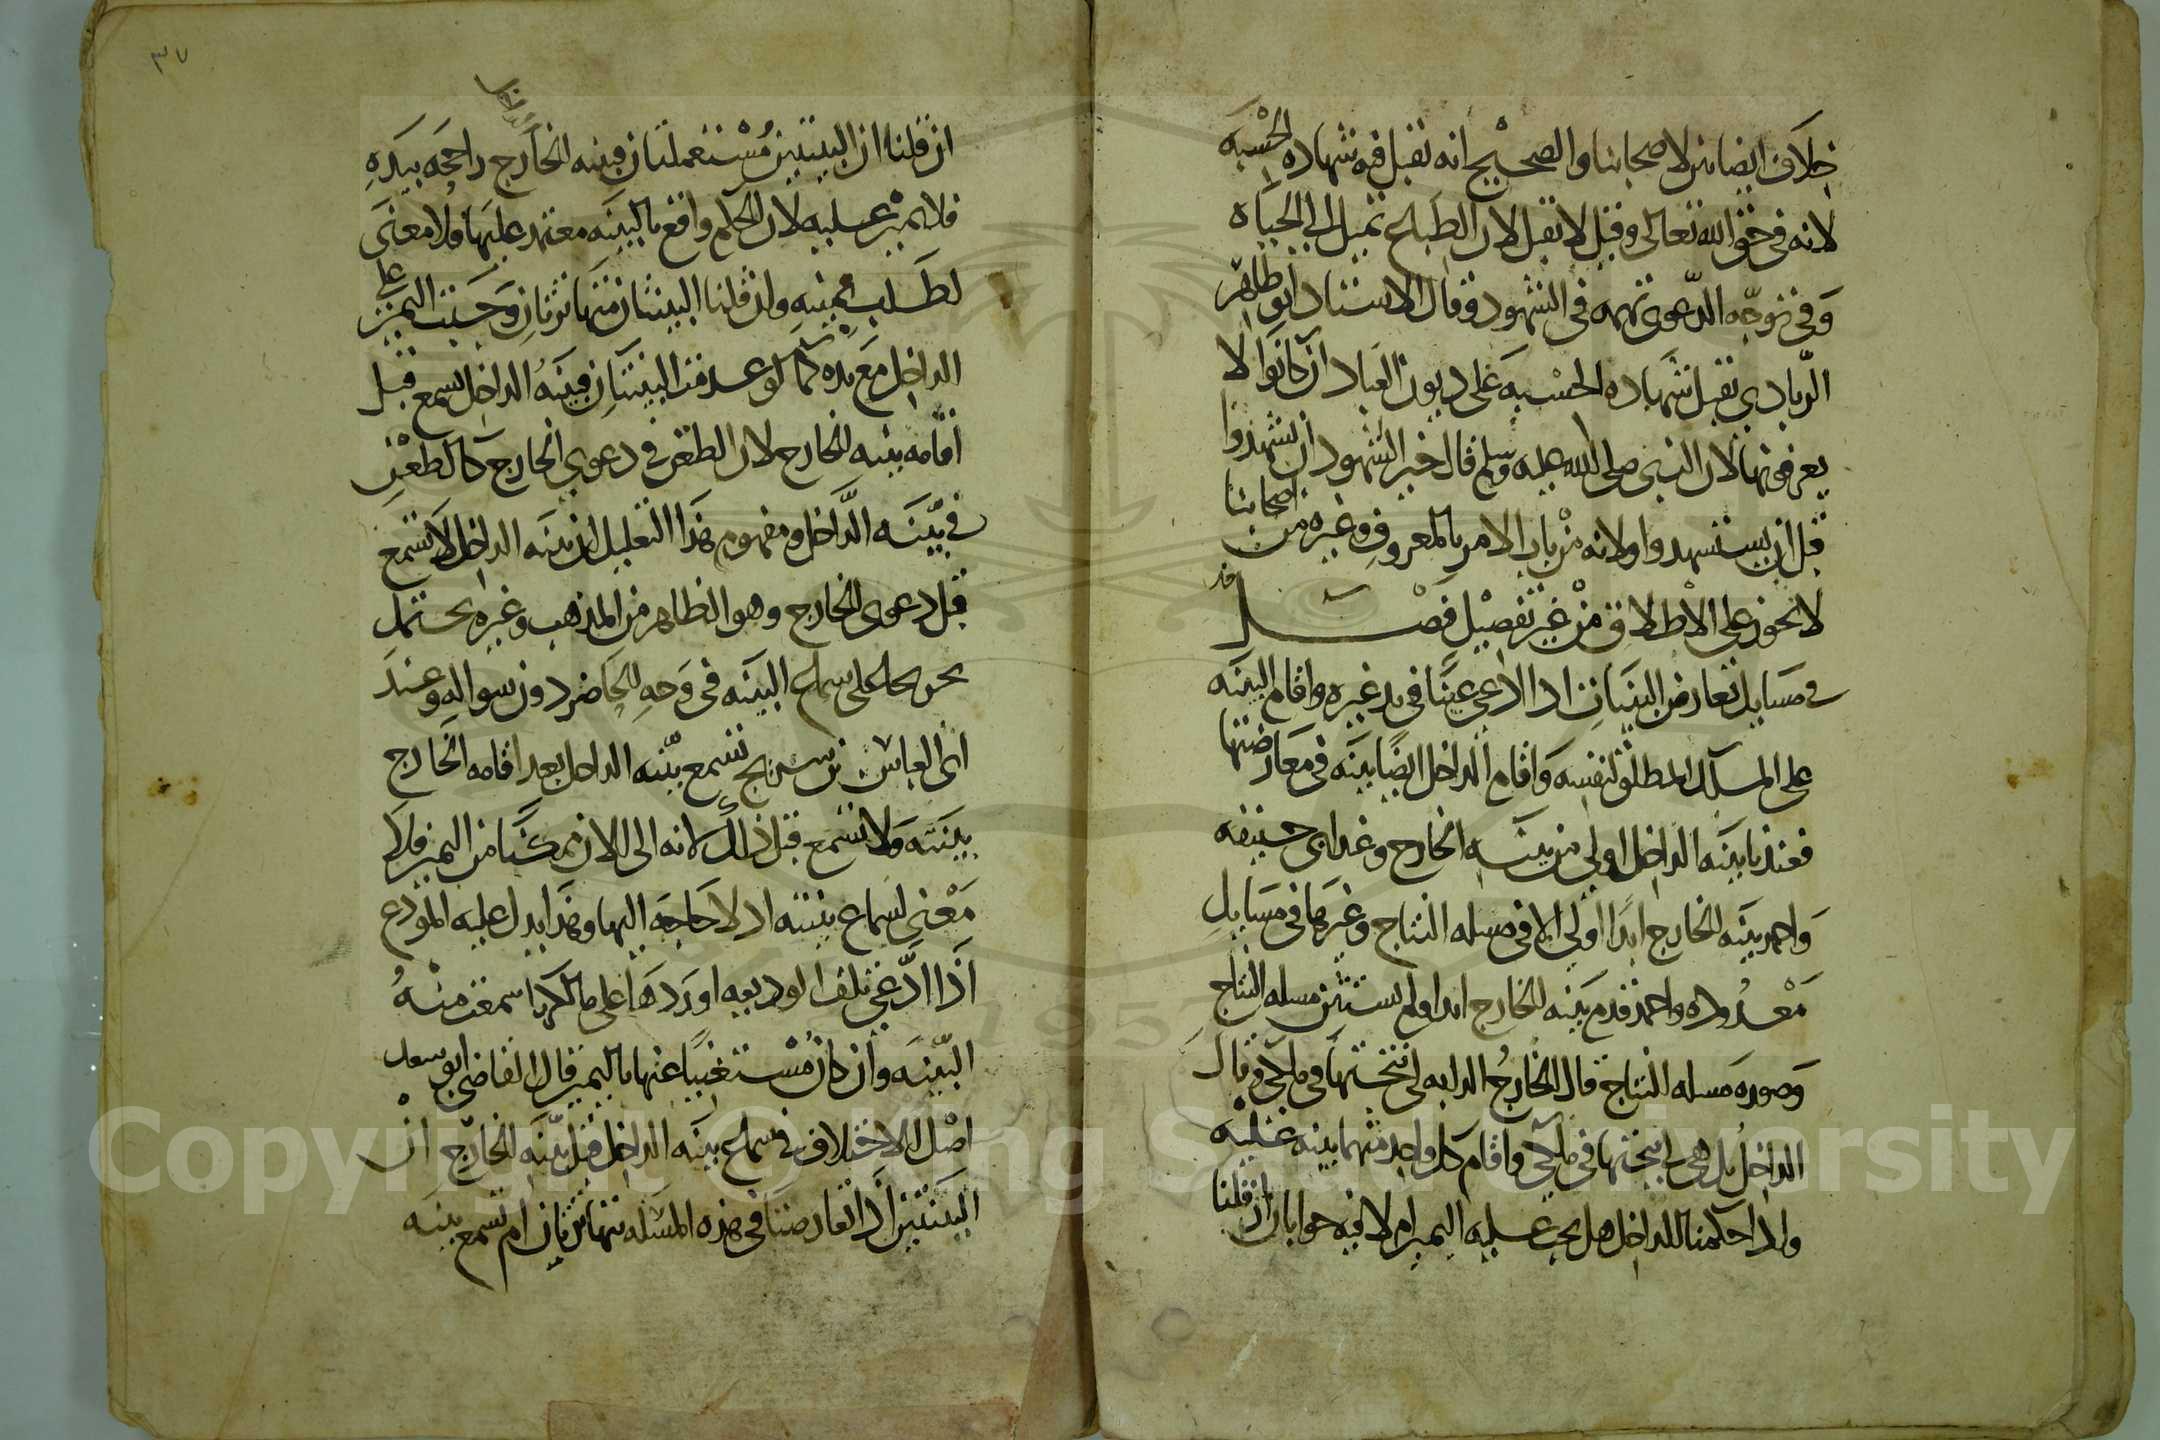 خلاف ايضا بين لاصحابنا والصحيح انه تقبل فيه شهاده الحسبه
لانه في حق الله تعالى وقيل لا تقبل لان الطباع تميل الى الحياه
وفي توجه الدعوى تهمه في الشهود وقال الاستاد ابو طاهر
الزيادي تقبل شهاده الحسبه على ديون العباد اذ كانوا لا
يعرفونها لان النبي صلى الله عليه وسلم قال خير الشهود ان يشهدوا
قبل ان يستشهدوا ولانه من باب الامر بالمعروف وغيره من اصحابنا
لا يجوز على الاطلاق من غير تفصيل فصل
في مسايل تعارض البينات اذا ادعي عينا في يد غيره واقام البينه
على الملك المطلق لنفسه واقام الداخل ايضا بينه في معارضتها
فعندنا بينه الداخل اولى من بينه الخارج وعند ابي حنيفه
واحمد بينه الخارج ابدا اولى الا في مسله النتاج وغيرها في مسايل
معدوده واحمد قدم بينه الخارج ابدا ولم يستثن مسله النتاج
وصوره مسله النتاج قال الخارج الدابه لي نتجتها في ملكي وقال
الداخل بل هي لي نتجتها في ملكي واقام كل واحد منهما بينه عليه
واذا حكمنا للداخل هل يجب عليه اليمين ام لا فيه جوابان ان قلنا
٣٧
ان قلنا ان البينتين مستعملتان فبينه الخارج راجحه بيده
فلا يمين عليه لان الحكم واقع بالبينه معتمد عليها ولا معنى
لطلب يمينه وان قلنا البينتان متهاترتان وجبت اليمين على
الداخل مع يده كما لو عدمت البينتان فبينه الداخل تسمع قبل
اقامه بينه الخارج لان الطعن في دعوي الخارج كالطعن
في بينه الداخل ومفهوم هذا التعليل ان بينه الداخل لا تسمع
قبل دعوى الخارج وهو الظاهر من المذهب وغيره يحتمل
على سماع البينه في وجه الحاضر دون سواله وعند
ابي العباس بن سريج تسمع بينه الداخل بعد اقامه الخارج
بينته ولا تسمع قبل ذلك لانه الى الان ممكنا من اليمين فلا
معنى لسماع بينته اذ لا حاجه اليها وهذا يدل عليه المودع
اذا ادعى تلف الوديعه او ردها على مالكها سمعت منه
البينه وان كان مستغنيا عنها باليمين قال القاضي ابو سعد
اصل الاختلاف في سماع بينه الداخل قبل بينه الخارج ان
البينتين اذا تعارضتا في هذه المسله تتهاتران ام تسمع بينه
Copyright © King Saud University
1957